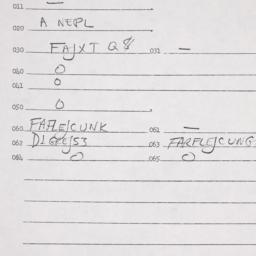 011 —
020 A NEPL
030 FAJXT Q8 031 —
040 O
041 O
050 O
060 FAFLEJCUNK 061 —
062 DIGEEJS3 063 FARFLEJCUNG
064 O 065 O